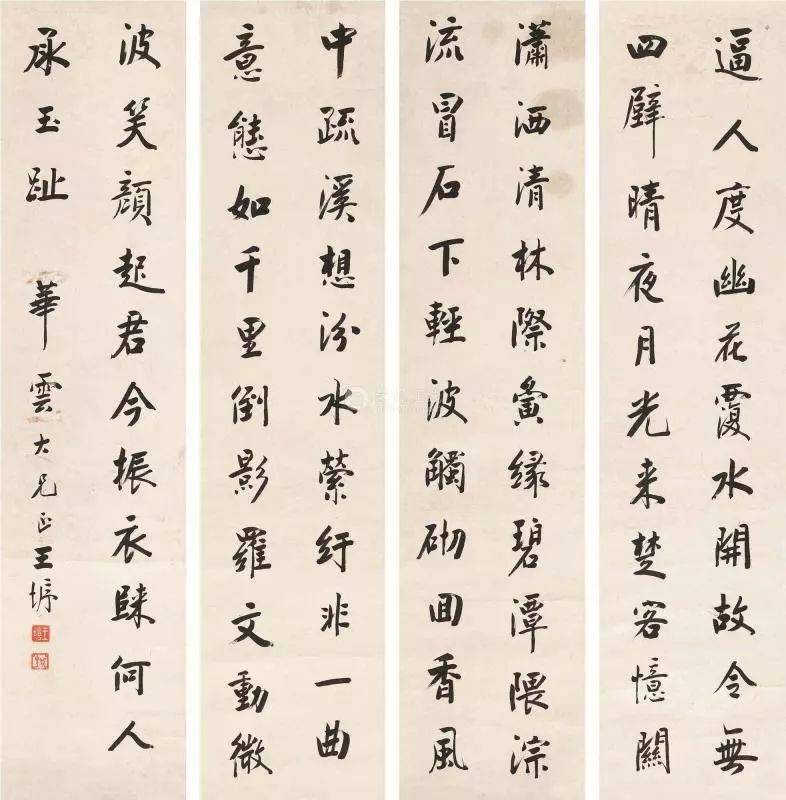 逼人度幽花覆水開故令無
四壁晴夜月光来楚客憶關
瀟洒清林際夤緣碧潭隈淙
流冒石下輕波觸砌囬香風
中疏溪想汾水縈紆非一曲
意態如千里倒影羅文動微
波笑顏起君今振衣歸何人
承玉趾 華雲大兄正王垿